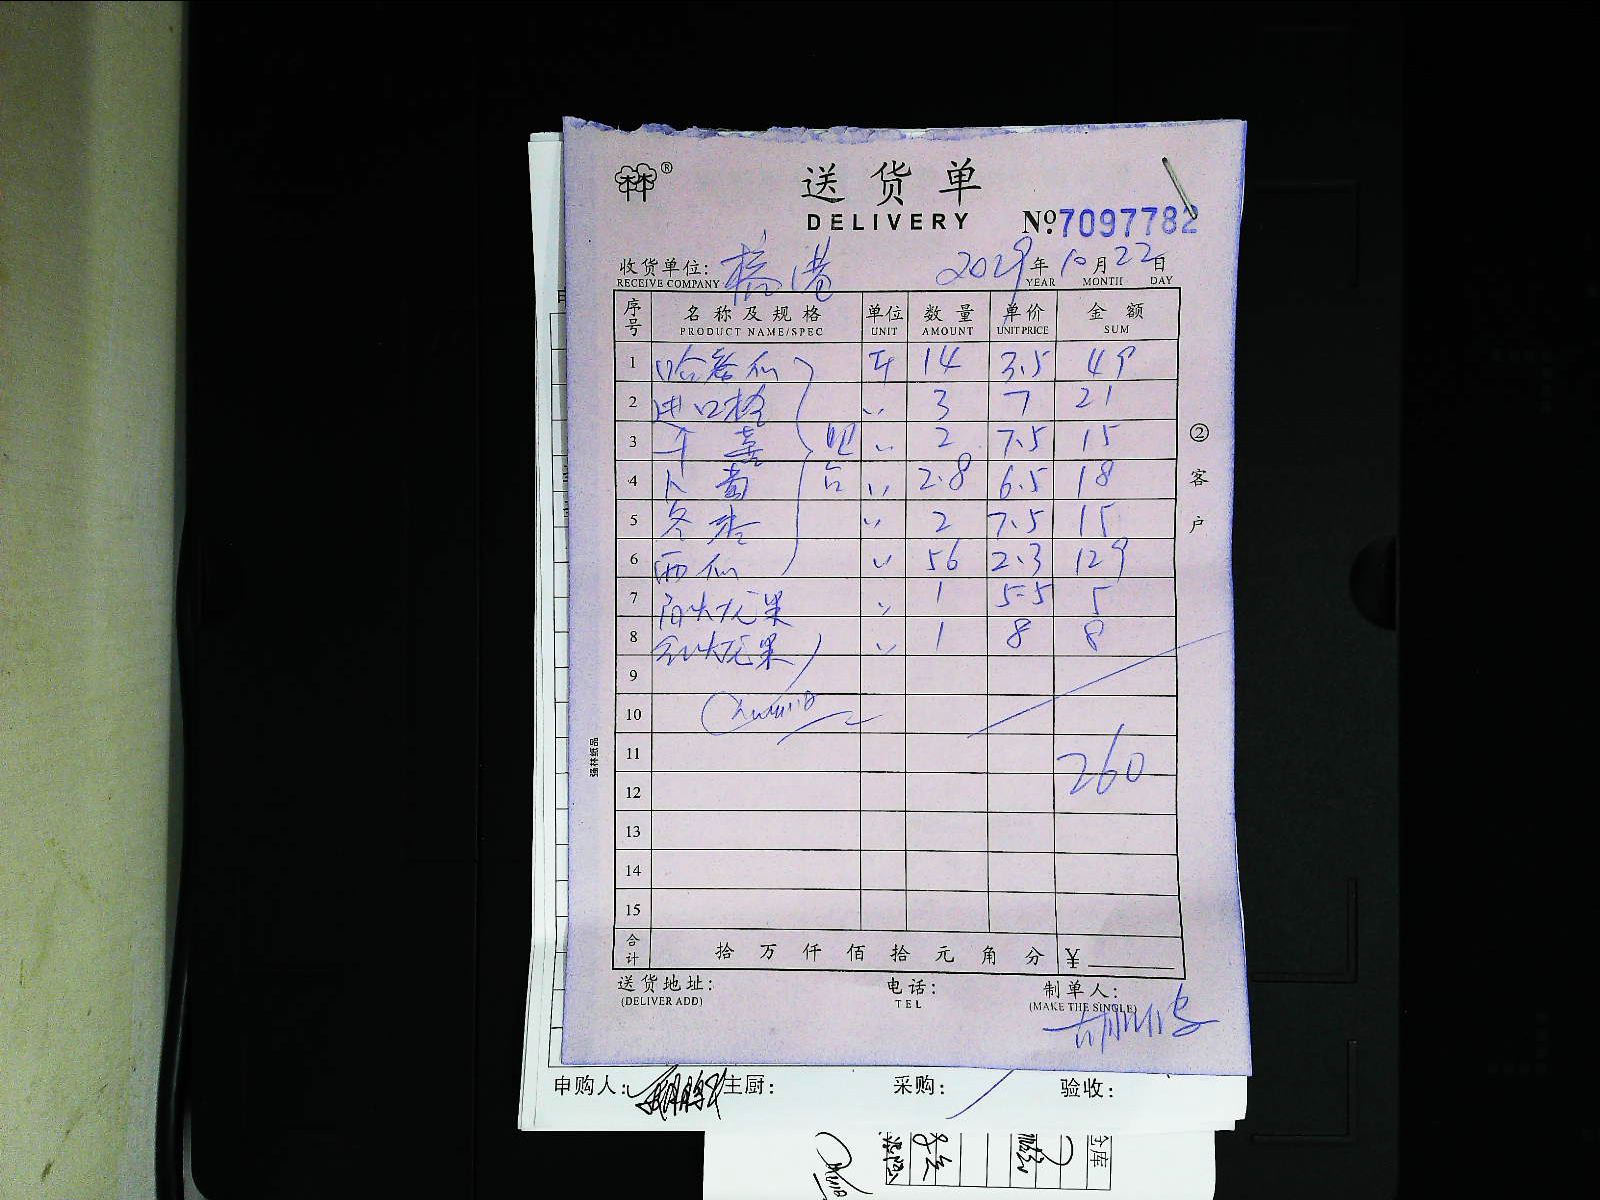 林®
送货单
DELIVERY
Nº:7097782
收货单位: 港 2029年10月22日
RECEIVE COMPANY YEAR MONTH DAY
序号 名称及规格 单位 数量 单价 金额
PRODUCT NAME/SPEC UNIT AMOUNT UNIT PRICE SUM
1 哈密瓜 斤 14 3.5 49
2 进口橙 〃 3 7 21
3 〃 2 7.5 15
4 〃 2.8 6.5 18
吧台
5 冬枣 〃 2 7.5 15
6 西瓜 〃 56 2.3 129
7 白火龙果 〃 1 5.5 5
8 红火龙果 〃 1 8 8
9
10
11 260
12
13
14
15
合计 拾 万 仟 佰 拾 元 角 分 ¥
②客户
强林纸品
送货地址: 电话: 制单人:
(DELIVER ADD) TEL (MAKE THE SINGLE)
申购人: 主厨: 采购: 验收:
仓库